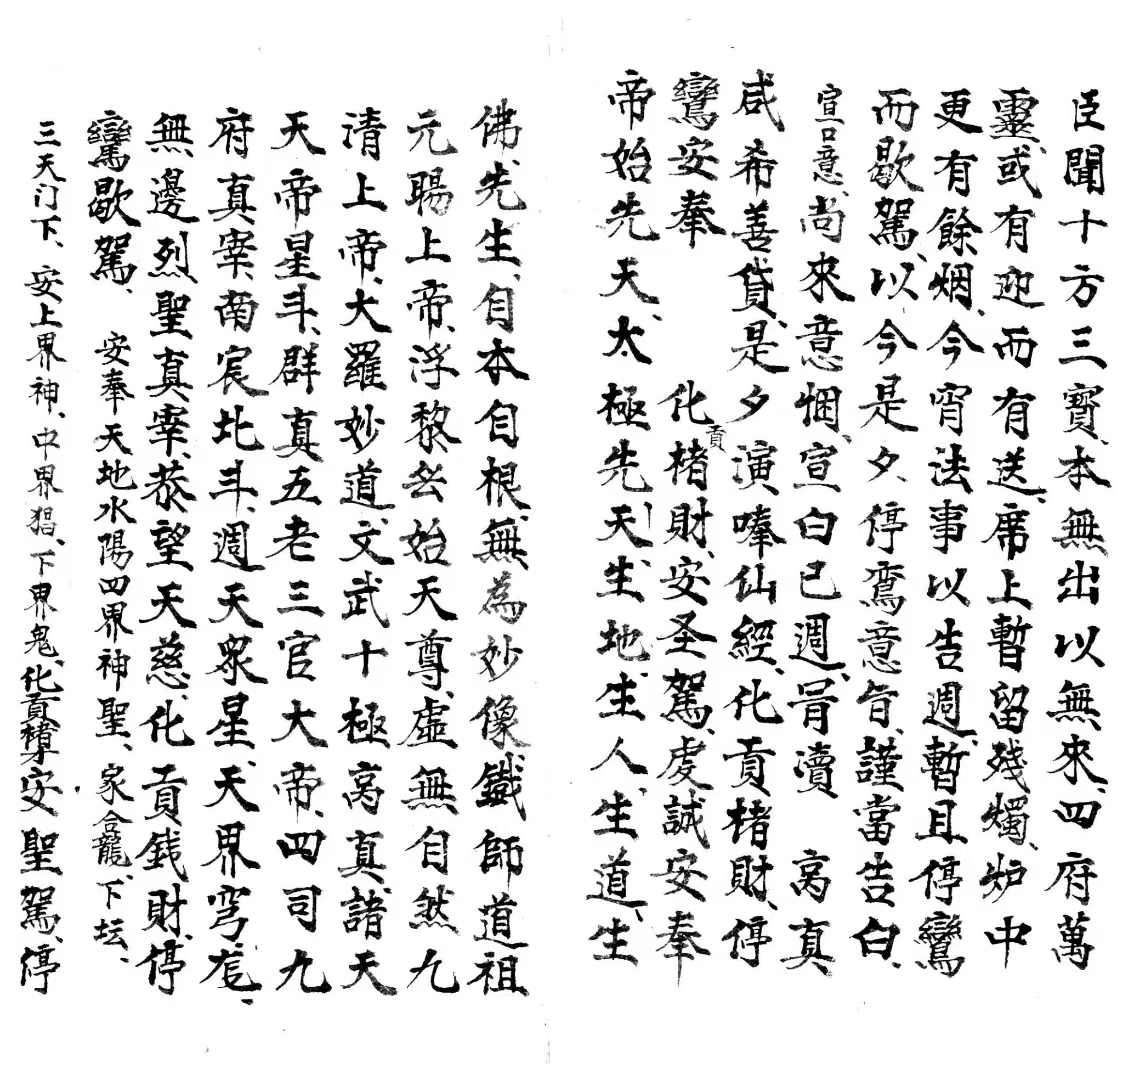 臣聞十方三寶、本無出以無來、四府萬
靈、或有迎而有送、席上暫留殘燭、炉中
更有餘烟、今宵法事以告週、暫且停鸞
而歇駕、以今是夕、停鸞意旨、謹當告白、
宣口意、尚來意悃、宣白已週、冐瀆 高真、
咸希善貸、是夕演唪仙經、化貢楮財、停
鸞安奉 化貢楮財、安圣駕、虔誠安奉
帝始先天、太極先天、生地、生人、生道、生
佛、先生、自本自根、無為妙像、鐵師道祖
元賜上帝、浮黎、始天尊、虛無自然九
清上帝、大羅妙道、文武十極高真、諸天
天帝星斗、群真五老三官大帝、四司九
府真宰、南宸北斗、週天眾星、天界穹窿、
無邊烈聖真宰、恭望天慈、化貢錢財、停
鸞歇駕、 安奉天地水陽四界神聖、家合龍、下坛、
三天门下、安上界神、中界猖、下界鬼、化貢楮財安聖駕、停